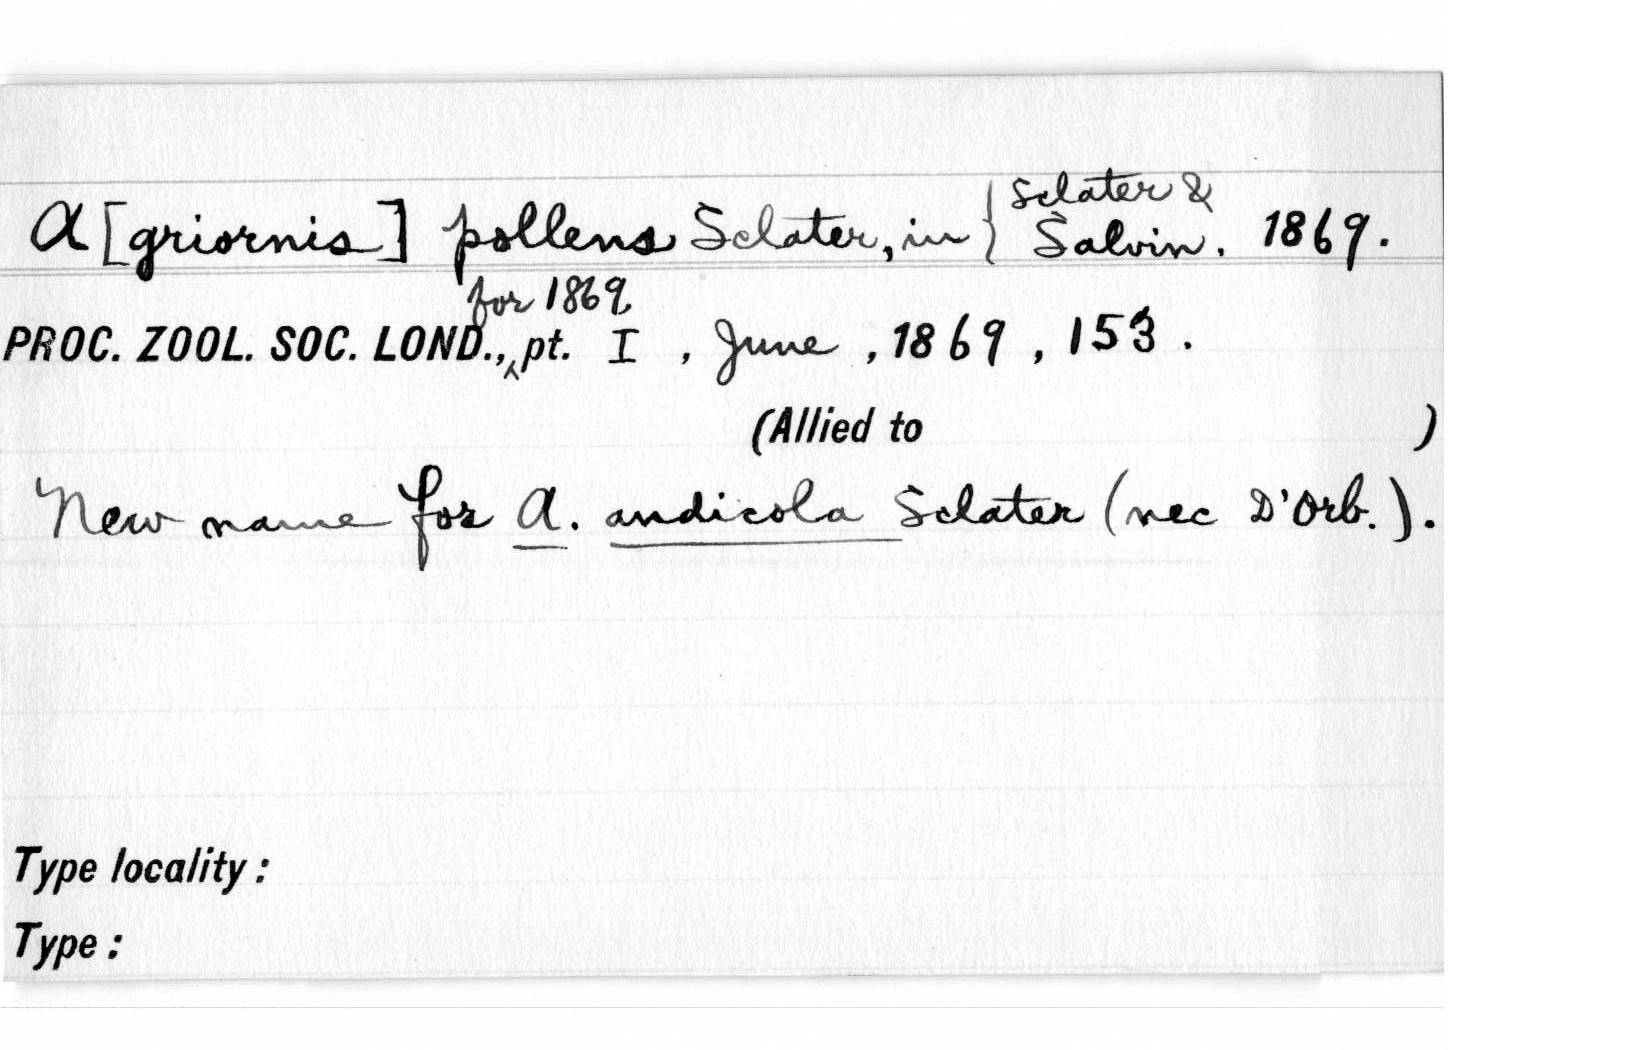 A[griornis] pollens Sclater, in { Sclater & Salvin. 1869.
PROC. ZOOL. SOC. LOND., for 1869, pt. I, June, 1869, 153.
(Allied to )
New name for A. andicola Sclater (nec D'Orb.).
Type locality:
Type: